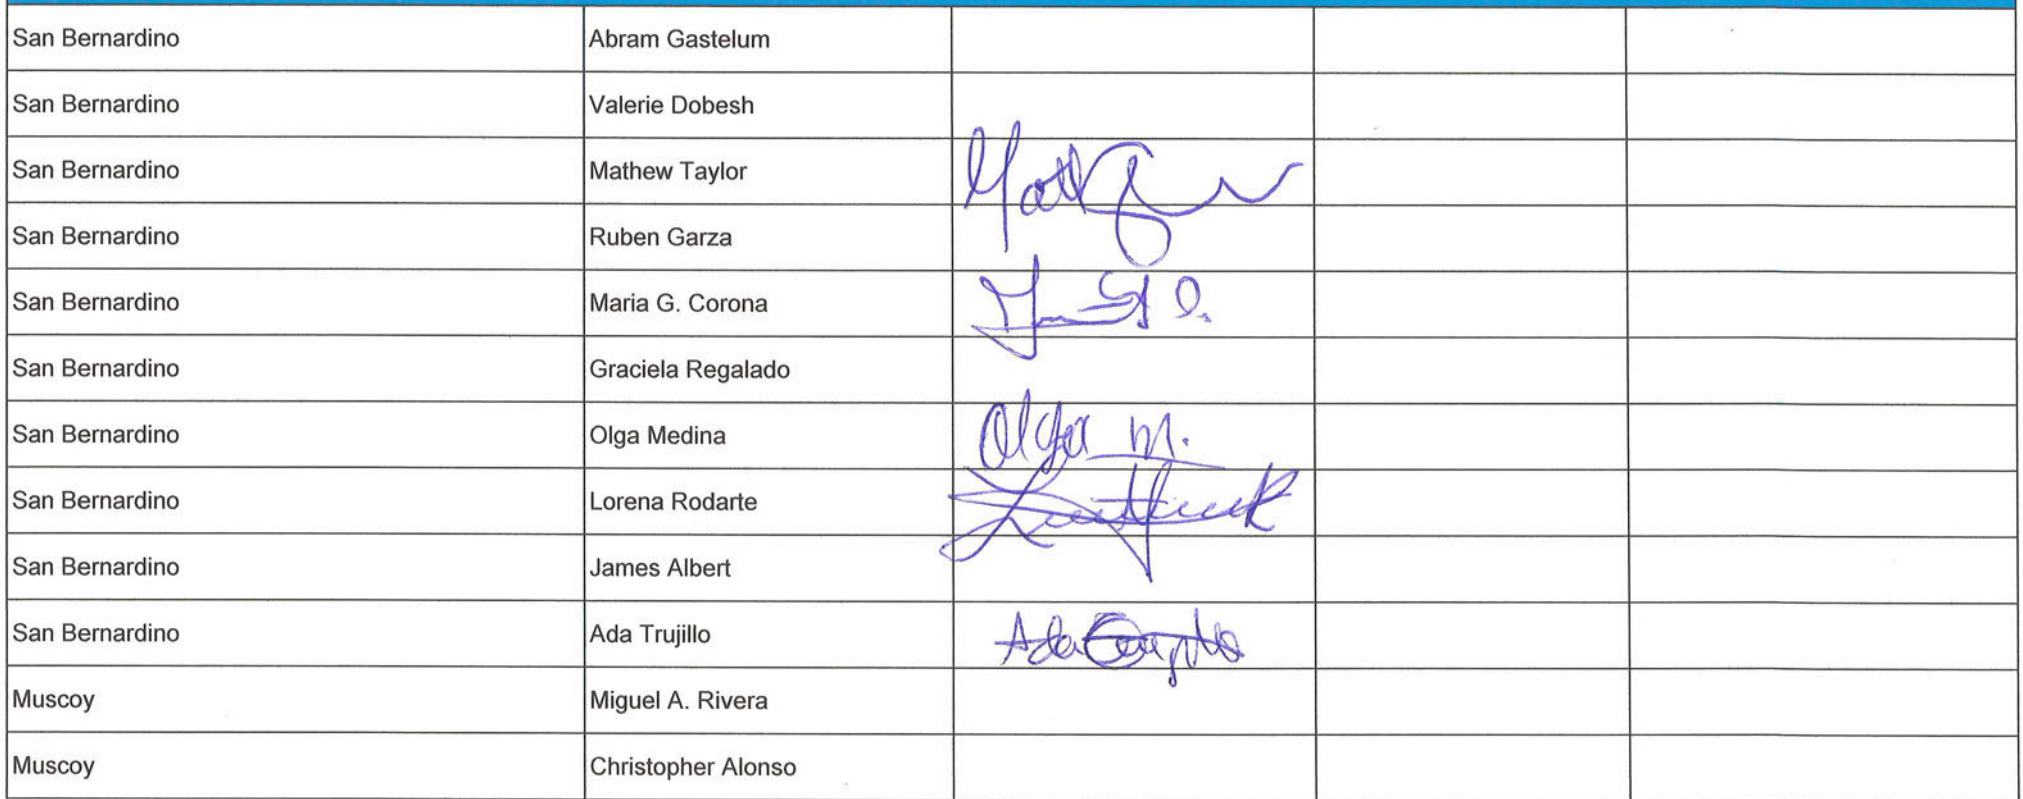 San Bernardino Abram Gastelum
San Bernardino Valerie Dobesh
San Bernardino Mathew Taylor
San Bernardino Ruben Garza
San Bernardino Maria G. Corona
San Bernardino Graciela Regalado
San Bernardino Olga Medina Olga M.
San Bernardino Lorena Rodarte
San Bernardino James Albert
San Bernardino Ada Trujillo Ada
Muscoy Miguel A. Rivera
Muscoy Christopher Alonso